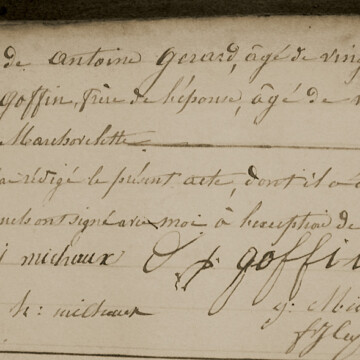 de antoine gerard, âgé de ving
goffin, frère de l'épouse, âgé de
Marchovelette
ai rédigé le présent acte, dont il a
ont signé avec moi à l'exception de
michaux goffin
h: michaux g: